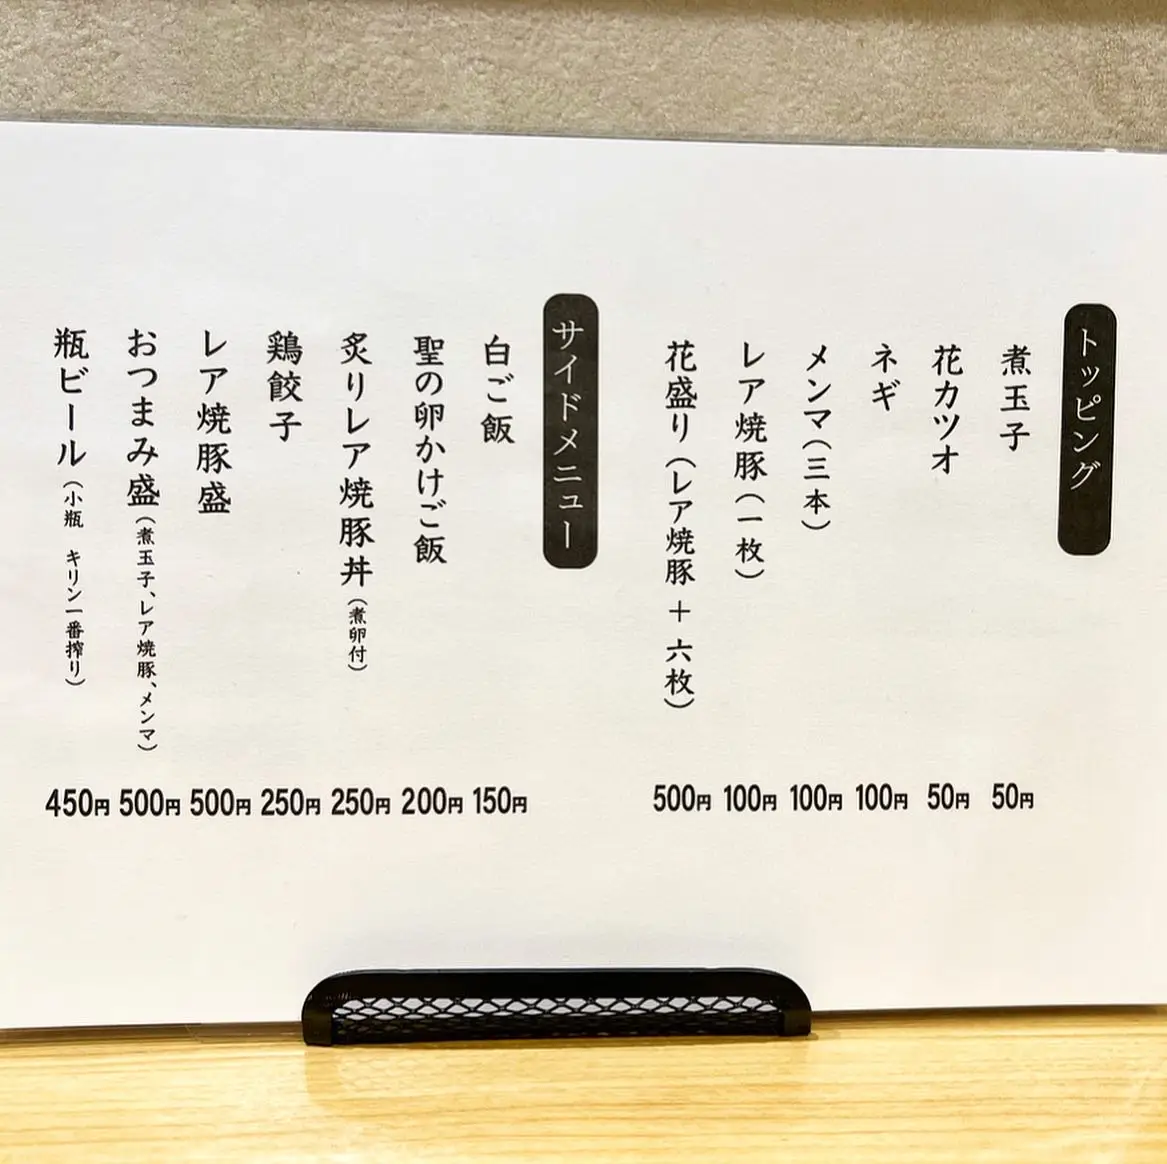 トッピング
煮玉子 50円
花カツオ 50円
ネギ 100円
メンマ(三本) 100円
レア焼豚(一枚) 100円
花盛り(レア焼豚 + 六枚) 500円
サイドメニュー
白ご飯 150円
聖の卵かけご飯 200円
炙りレア焼豚丼(煮卵付) 250円
鶏餃子 250円
レア焼豚盛 500円
おつまみ盛(煮玉子、レア焼豚、メンマ) 500円
瓶ビール(小瓶 キリン一番搾り) 450円